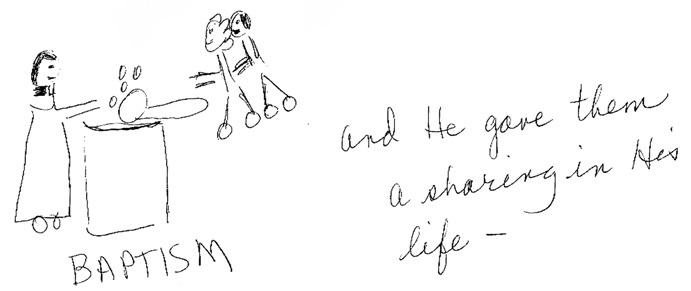 BAPTISM
and He gave them
a sharing in His
life –